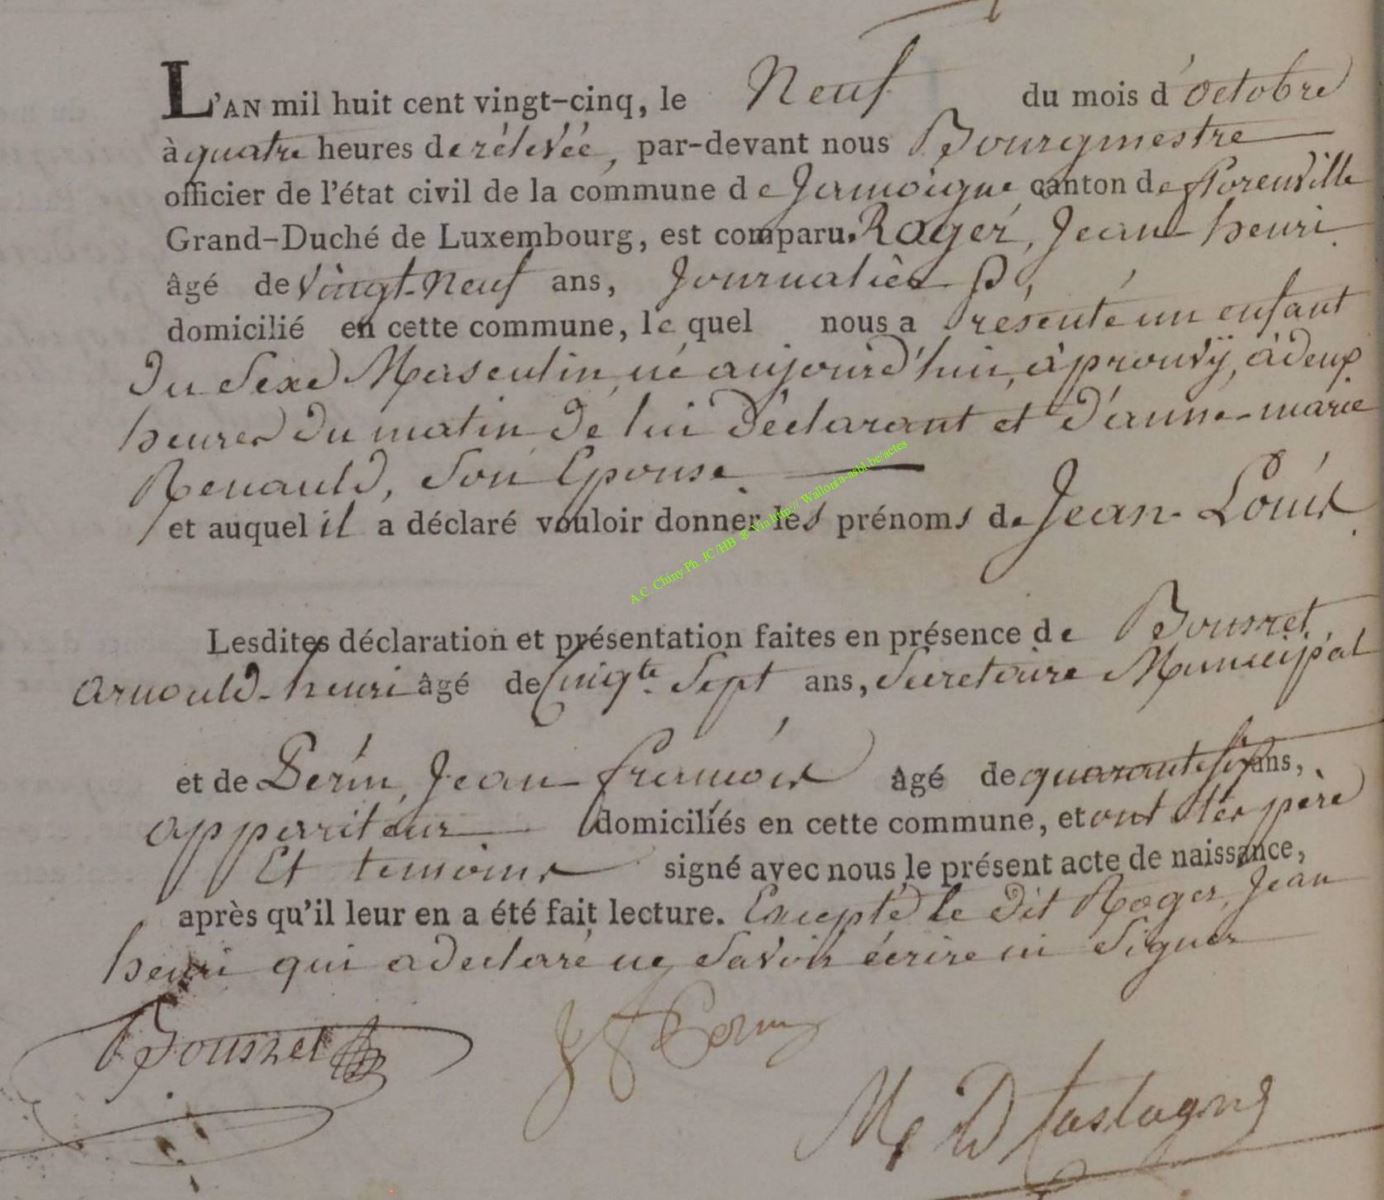 L'AN mil huit cent vingt-cinq, le Neuf du mois d'octobre
à quatre heures de rélevée, par-devant nous Bourgmestre
officier de l'état civil de la commune de Jamoigne canton de florenville
Grand-Duché de Luxembourg, est comparu Roger, Jean henri
âgé de Vingt-Neuf ans, Journalier
domicilié en cette commune, le quel nous a Présenté un enfant
Du Sexe Masculin, né aujourd'hui, à prouvÿ, à deux
heures Du matin De lui Déclarant et d'anne-marie
Renauld, Son Epouse
et auquel il a déclaré vouloir donner les prénoms de Jean-Louis
A.C. Chiny Ph. JC/HB @ Via http:// Wallonia-asbl.be/actes
Lesdites déclaration et présentation faites en présence de Bousret
arnould-henri âgé de Cinqte Sept ans, Secretaire Municipal
et de Perin, Jean françois âgé de quarante six ans,
appariteur domiciliés en cette commune, et ont les père
Et temoins signé avec nous le présent acte de naissance,
après qu'il leur en a été fait lecture. Excepté le dit Roger, Jean
henri qui a declaré ne Savoir écrire ni Signer
Bousret JF Perin